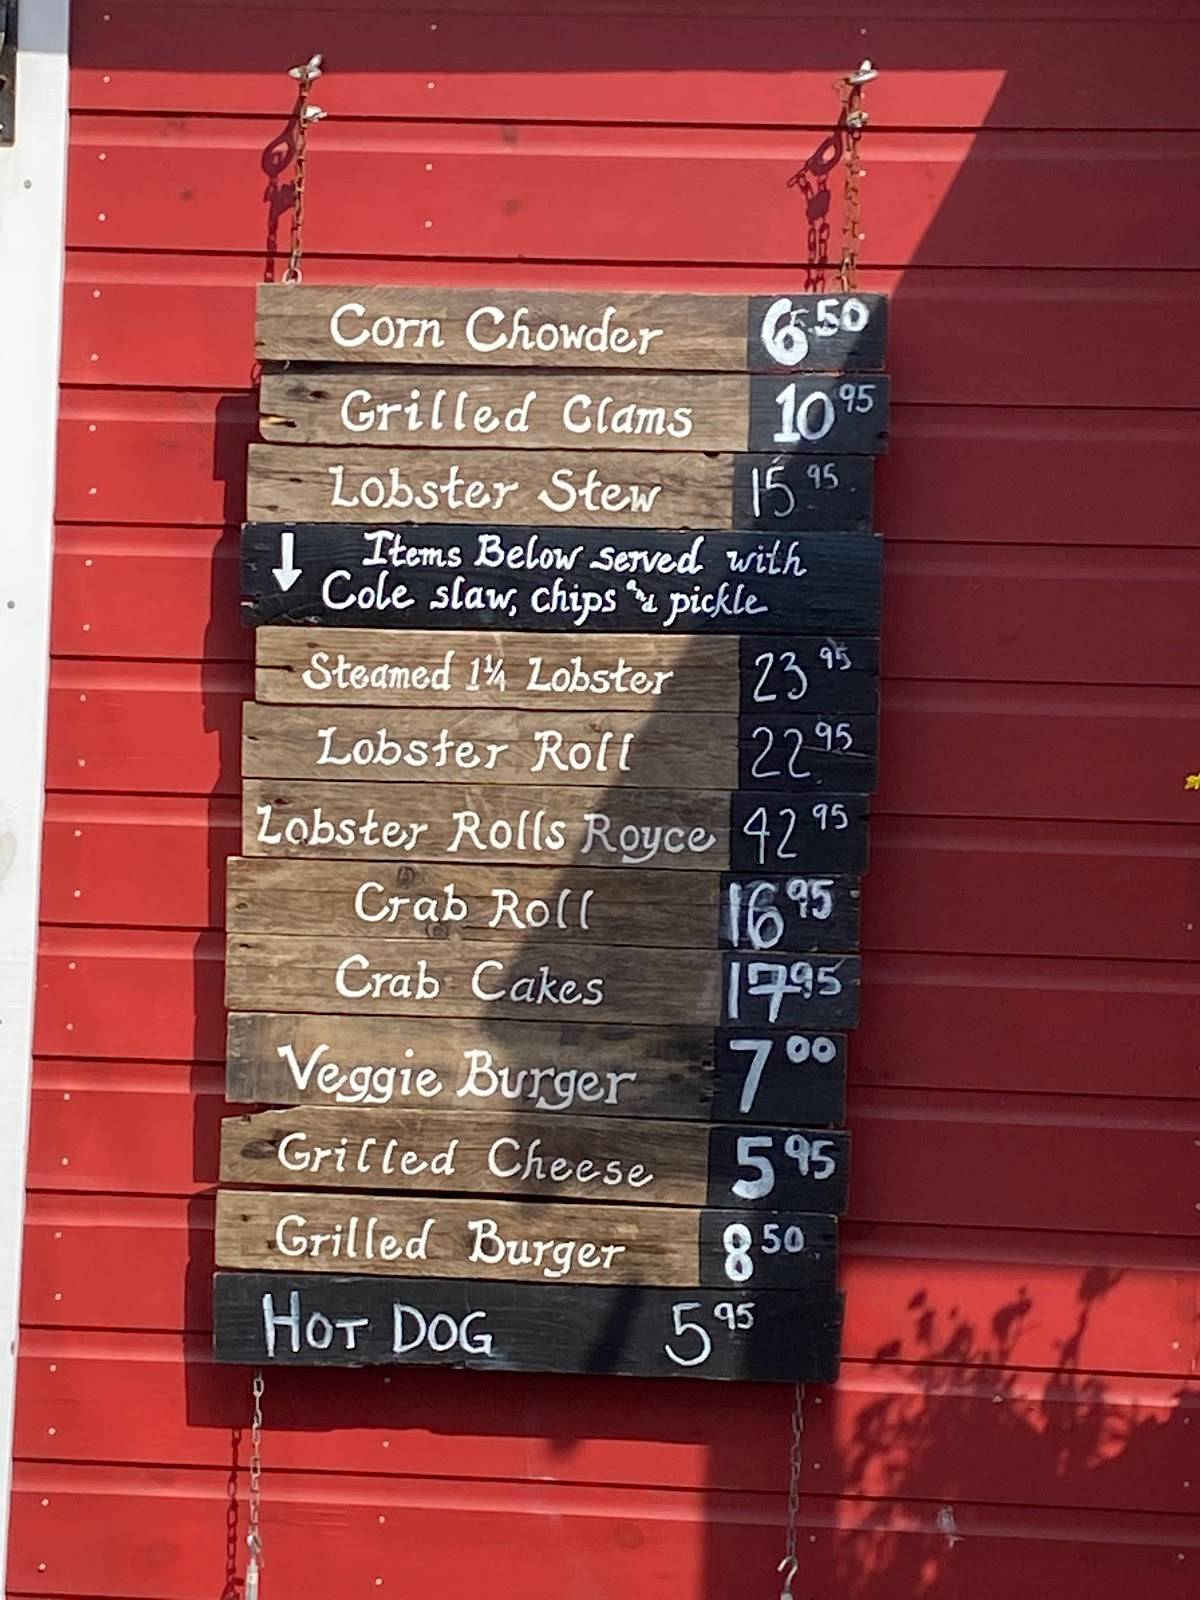 Corn Chowder 6.50
Grilled Clams 10 95
Lobster Stew 15 95
↓ Items Below served with
Cole slaw, chips and pickle
Steamed 1¼ Lobster 23 95
Lobster Roll 22 95
Lobster Rolls Royce 42 95
Crab Roll 16 95
Crab Cakes 17 95
Veggie Burger 7 00
Grilled Cheese 5 95
Grilled Burger 8 50
HOT DOG 5 95